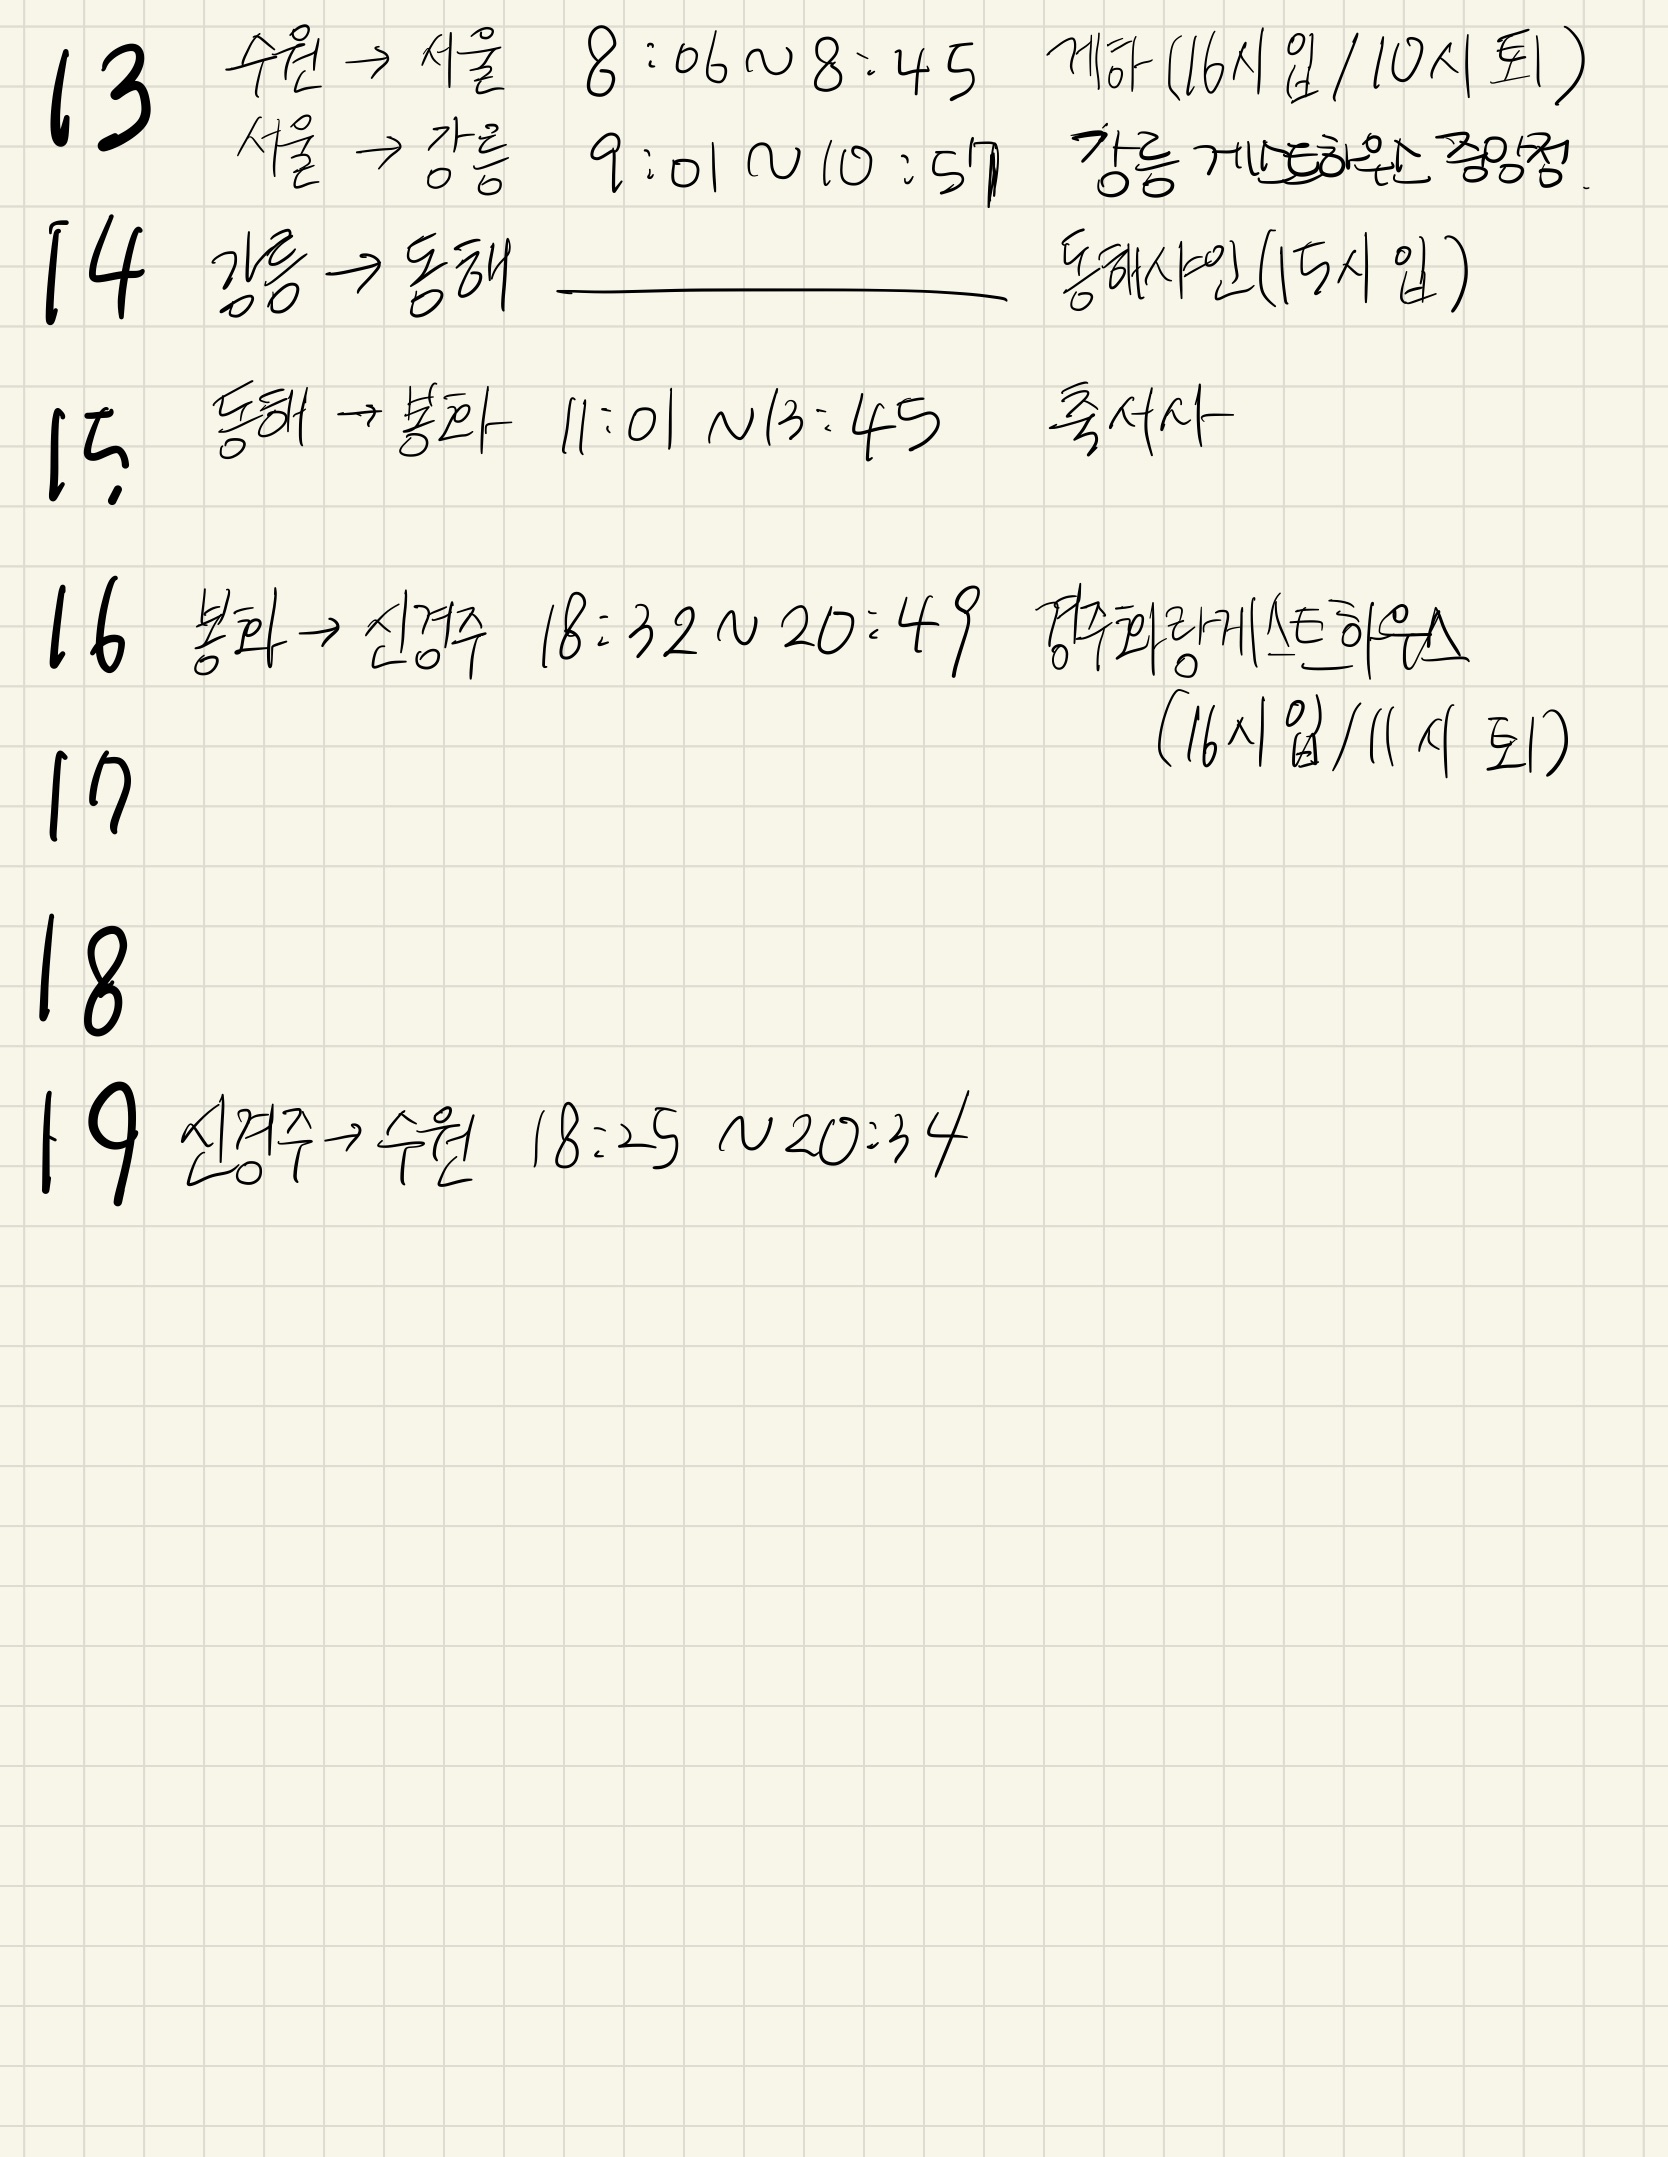 13 수원 → 서울 8:06 ~ 8:45 게하 (16시 입/10시 퇴)
서울 → 강릉 9:01 ~ 10:57 강릉 게스트하우스 중앙점.
14 강릉 → 동해 동해샤인 (15시 입)
15. 동해 → 봉화 11:01 ~ 13:45 축서사
16 봉화 → 신경주 18:32 ~ 20:49 경주화랑게스트하우스
(16시 입/11시 퇴)
17
18
19 신경주 → 수원 18:25 ~ 20:34